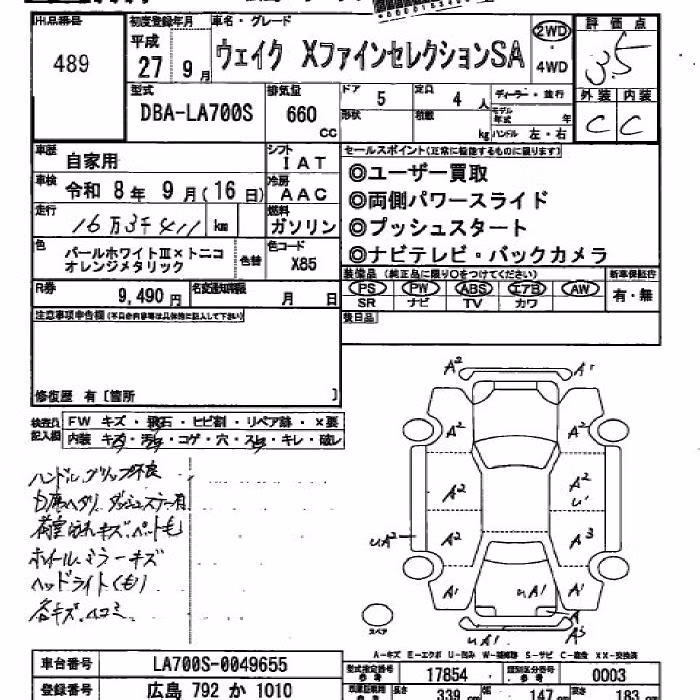 出品番号 初度登録年月 車名・グレード 評価点
489 平成 27 9月 ウェイク XファインセレクションSA 2WD・4WD 3.5
型式 排気量 ドア 5 定員 4人 ディーラー・並行 外装 内装
DBA-LA700S 660cc 形状 積載 kg モデル年式 年 ハンドル 左・右 C C
車歴 自家用 シフト IAT セールスポイント(正常に機能するものに限ります)
車検 令和 8年 9月(16日) 冷房 AAC ◎ユーザー買取
走行 16万3千411 km 燃料 ガソリン ◎両側パワースライド
◎プッシュスタート
色 パールホワイトⅢ×トニコオレンジメタリック 色替 色コード X85 ◎ナビテレビ・バックカメラ
装備品(純正品に限り○をつけてください) 新車保証書
R券 9,490円 名変通知期限 月 日 PS PW ABS エアB AW 有・無
SR ナビ TV カワ
注意事項申告欄 後日品
修復歴 有〔箇所 〕
検査員記入欄 FW キズ・飛石・ヒビ割・リペア跡・×要
内装 キズ・汚れ・コゲ・穴・スレ・キレ・破レ
ハンドル,グリップ不良
ホイール,ミラーキズ
ヘッドライトくもり
各キズ,ヘコミ
A² A'
A² A²
A² A² u'
uA² A² A³
A' uA' A'
A
スペア uA' A³
A-キズ E-エクボ U-凹み W-補修跡 S-サビ C-腐食 XX-交換済
車台番号 LA700S-0049655 型式指定番号 参考 17854 類別区分番号 参考 0003
登録番号 広島 792 か 1010 長さ 339 cm 幅 147 cm 高さ 183 cm